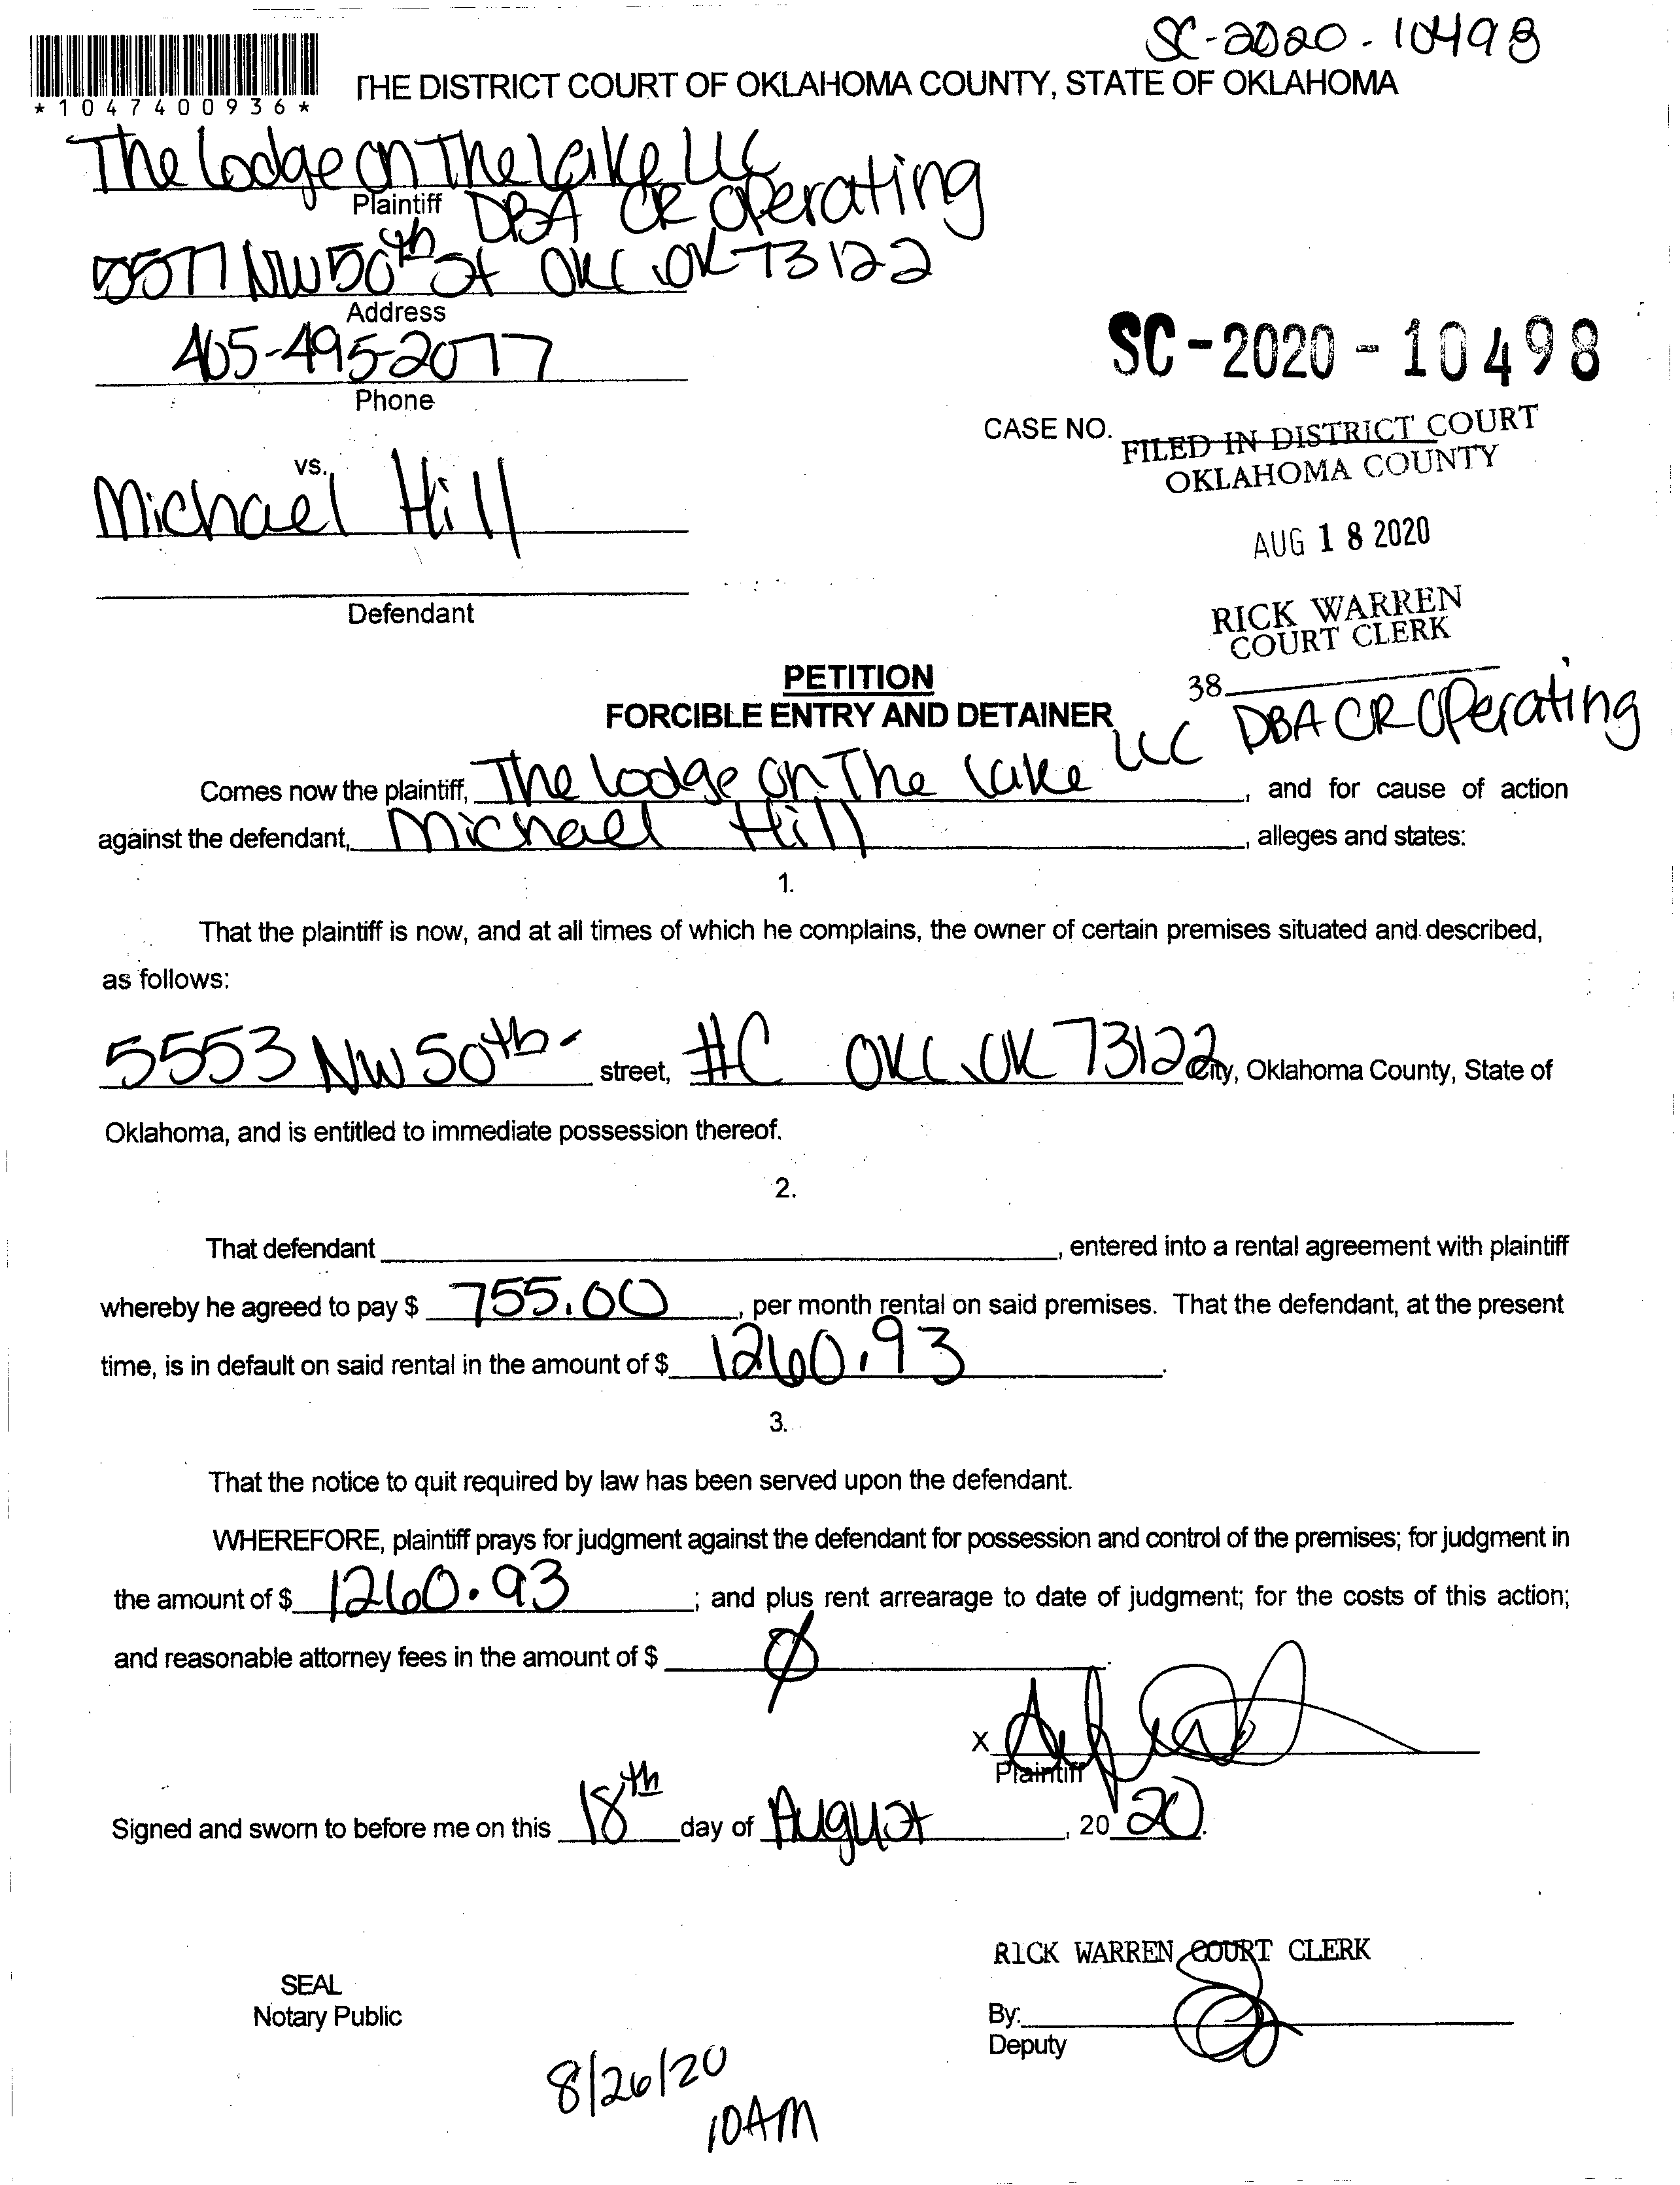 SC-2020-10498
*1047400936*
THE DISTRICT COURT OF OKLAHOMA COUNTY, STATE OF OKLAHOMA
The Lodge on The Lake LLC
Plaintiff DBA CR Operating
5577 NW 50th St OKC, OK 73122
Address
405-495-2077
Phone
SC-2020-10498
CASE NO.
FILED IN DISTRICT COURT
OKLAHOMA COUNTY
vs.
Michael Hill
AUG 18 2020
Defendant
RICK WARREN
COURT CLERK
38
PETITION
FORCIBLE ENTRY AND DETAINER
Comes now the plaintiff, The Lodge on The Lake LLC DBA CR Operating, and for cause of action
against the defendant, Michael Hill, alleges and states:
1.
That the plaintiff is now, and at all times of which he complains, the owner of certain premises situated and described,
as follows:
5553 NW 50th street, #C OKC, OK 73122 City, Oklahoma County, State of
Oklahoma, and is entitled to immediate possession thereof.
2.
That defendant , entered into a rental agreement with plaintiff
whereby he agreed to pay $ 755.00, per month rental on said premises. That the defendant, at the present
time, is in default on said rental in the amount of $ 1260.93.
3.
That the notice to quit required by law has been served upon the defendant.
WHEREFORE, plaintiff prays for judgment against the defendant for possession and control of the premises; for judgment in
the amount of $ 1260.93; and plus rent arrearage to date of judgment; for the costs of this action;
and reasonable attorney fees in the amount of $ Ø.
X
Plaintiff
Signed and sworn to before me on this 18th day of August, 2020.
RICK WARREN COURT CLERK
SEAL
Notary Public
By:
Deputy
8/26/20
10AM